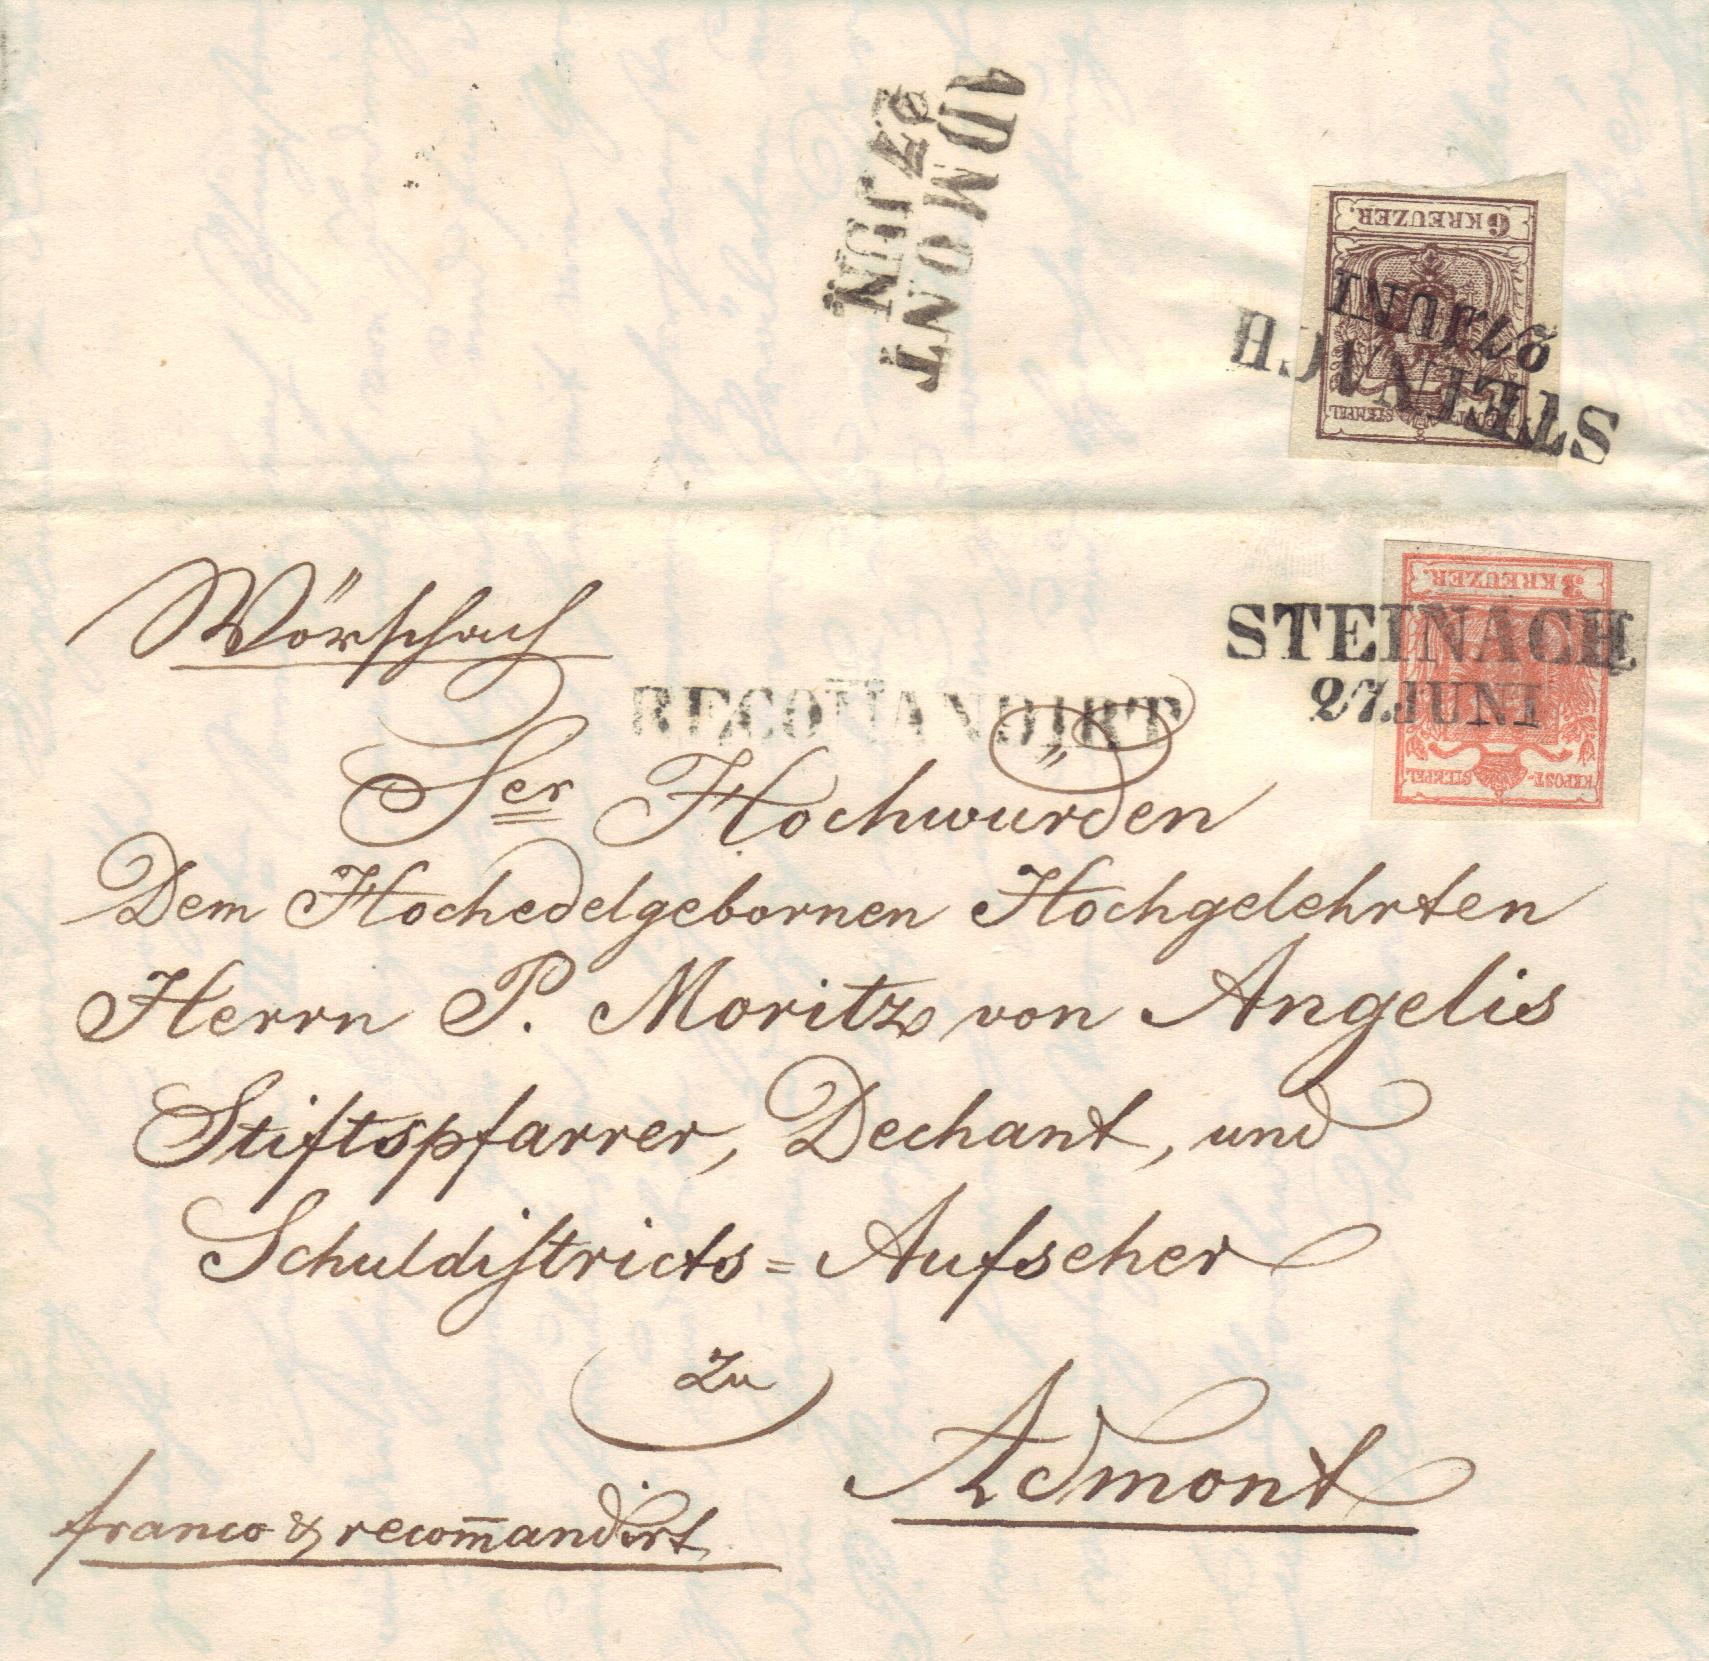 ADMONT
27 JUN
6 KREUZER.
STEINACH
27. JUNI
STEMPEL
Wörschach
3 KREUZER.
STEINACH
27. JUNI
RECOMANDIRT
KKPOST-STEMPEL
Ser Hochwürden
Dem Hochedelgebornen Hochgelehrten
Herrn P. Moritz von Angelis
Stiftspfarrer, Dechant, und
Schuldistricts=Aufseher
zu
Admont
franco & recom̅andirt